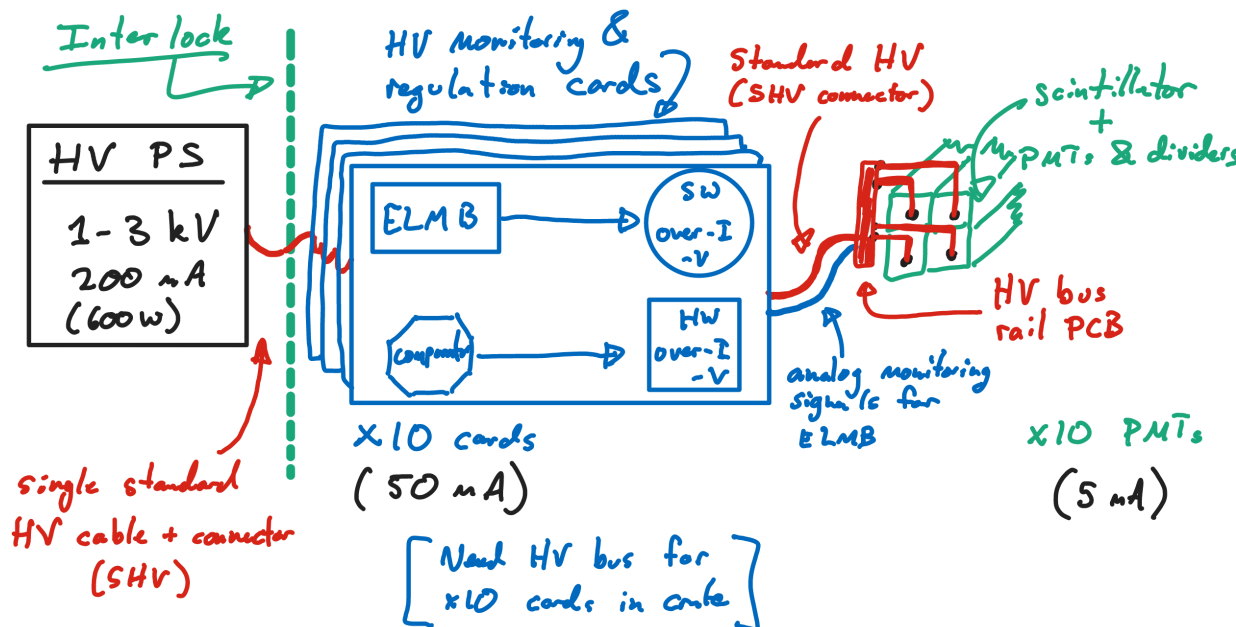 Interlock
HV PS
1-3 kV
200 mA
(600W)
single standard
HV cable + connector
(SHV)
HV monitoring &
regulation cards
ELMB
SW
over-I
-V
comparator
HW
over-I
-V
x10 cards
(50 mA)
[Need HV bus for
x10 cards in crate]
Standard HV
(SHV connector)
analog monitoring
signals for
ELMB
scintillator
+
PMTs & dividers
HV bus
rail PCB
x10 PMTs
(5 mA)